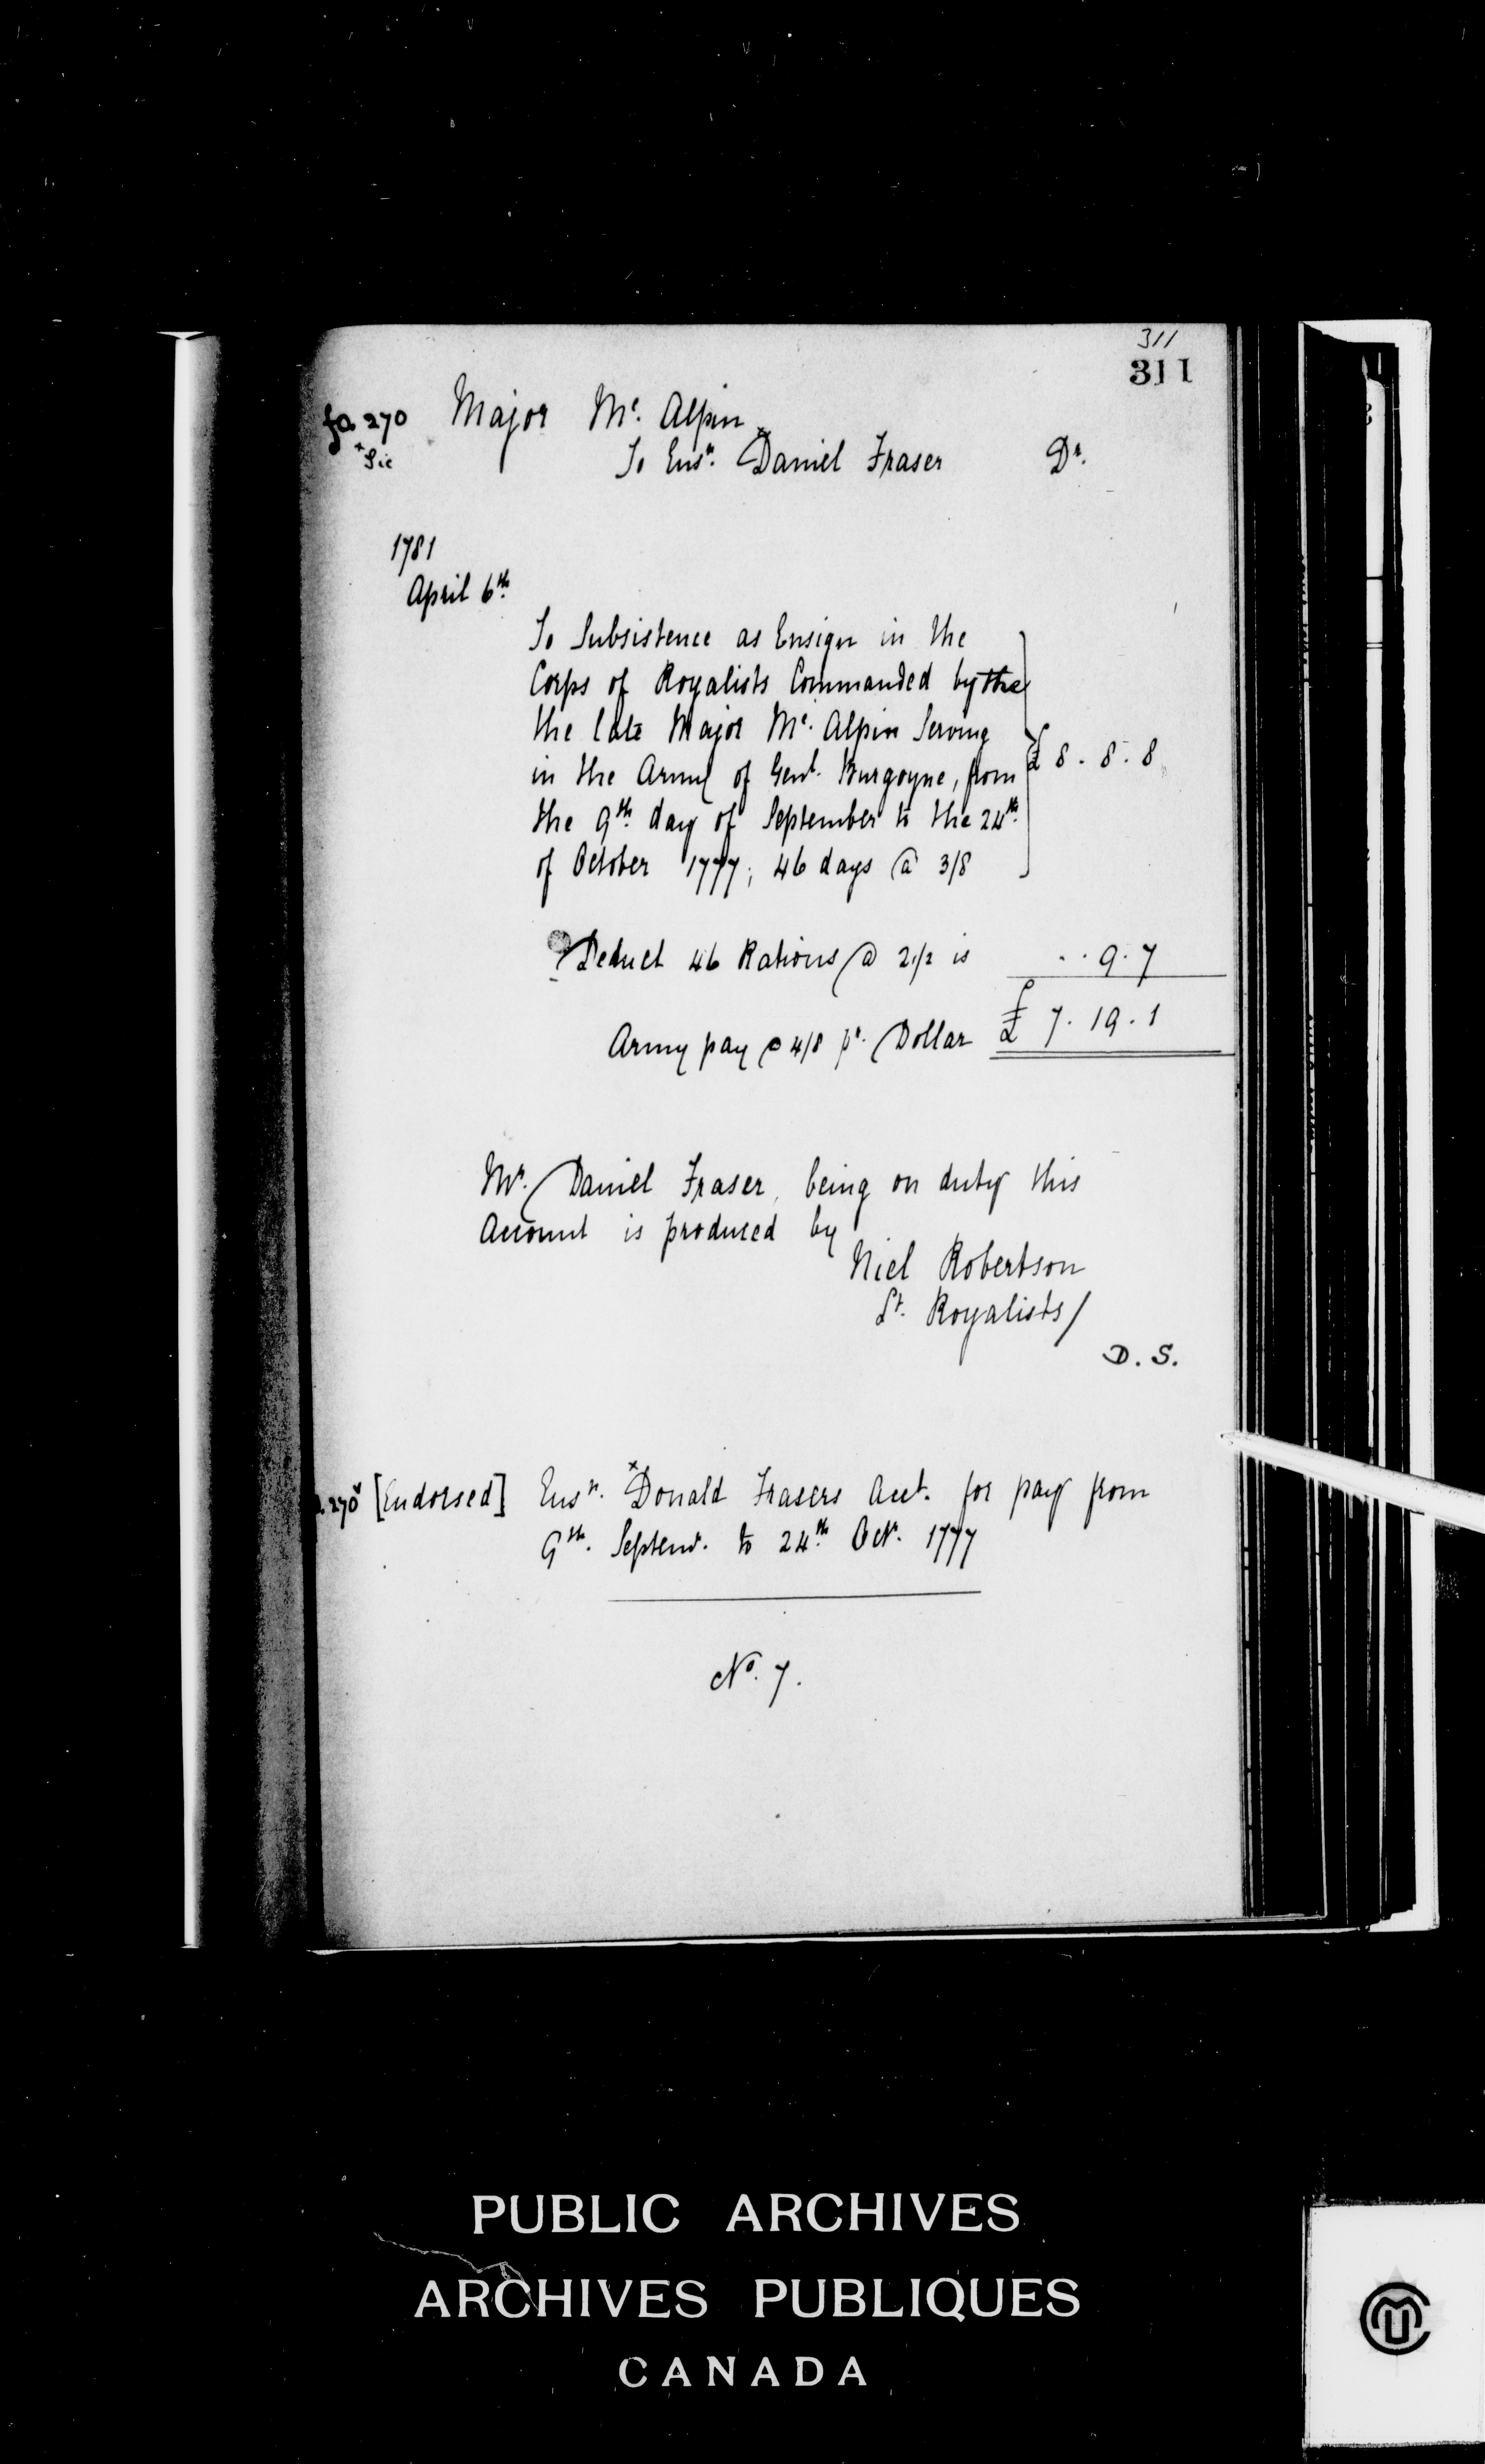 311
311
fo. 270 Major Mc. Alpin
x Sic
To Ensn. xDaniel Fraser Dr.
1781
April 6th.
To Subsistence as Ensign in the
Corps of Royalists Commanded by the
the late Major Mc. Alpin Serving
in the Army of Genl. Burgoyne, from
the 9th. day of September to the 24th.
of October 1777; 46 days @ 3/8
£ 8. 8. 8
Deduct 46 Rations @ 2 1/2 is . . 9. 7
Army pay @ 4/8 pr. Dollar £ 7. 19. 1
Mr. Daniel Fraser, being on duty this
Account is produced by
Niel Robertson
Lt. Royalists/
D. S.
270v [Endorsed] Ensn. xDonald Frasers Acct. for pay from
9th. Septemr. to 24th. Octr. 1777
No. 7.
PUBLIC ARCHIVES
ARCHIVES PUBLIQUES
CANADA